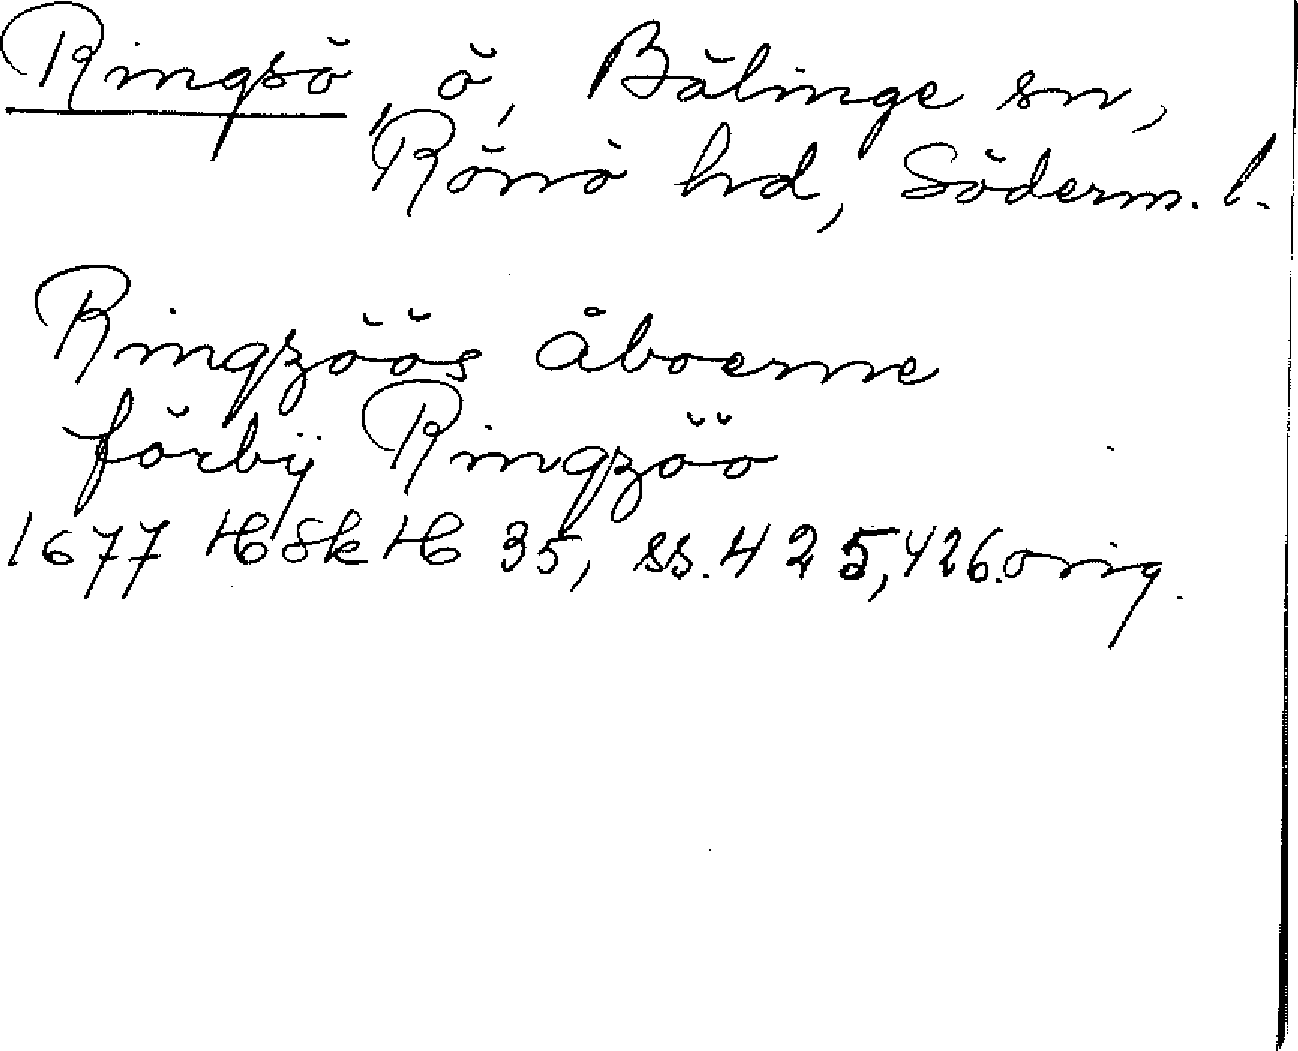 Ringsö, ö, Bälinge sn,
Rönö hd, Söderm. l.
Ringzöös åboerne
förbij Ringzöö
1677 HSkH 35, ss. 425, 426. orig.